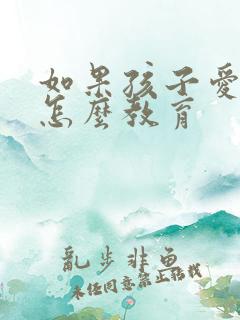 如果孩子愛
怎麼教育
亂步非魚
未經同意禁止轉載